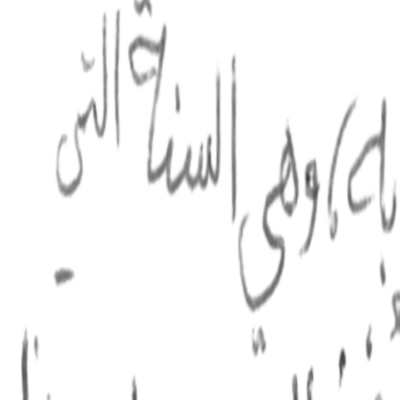 به)، وهي السنة التي